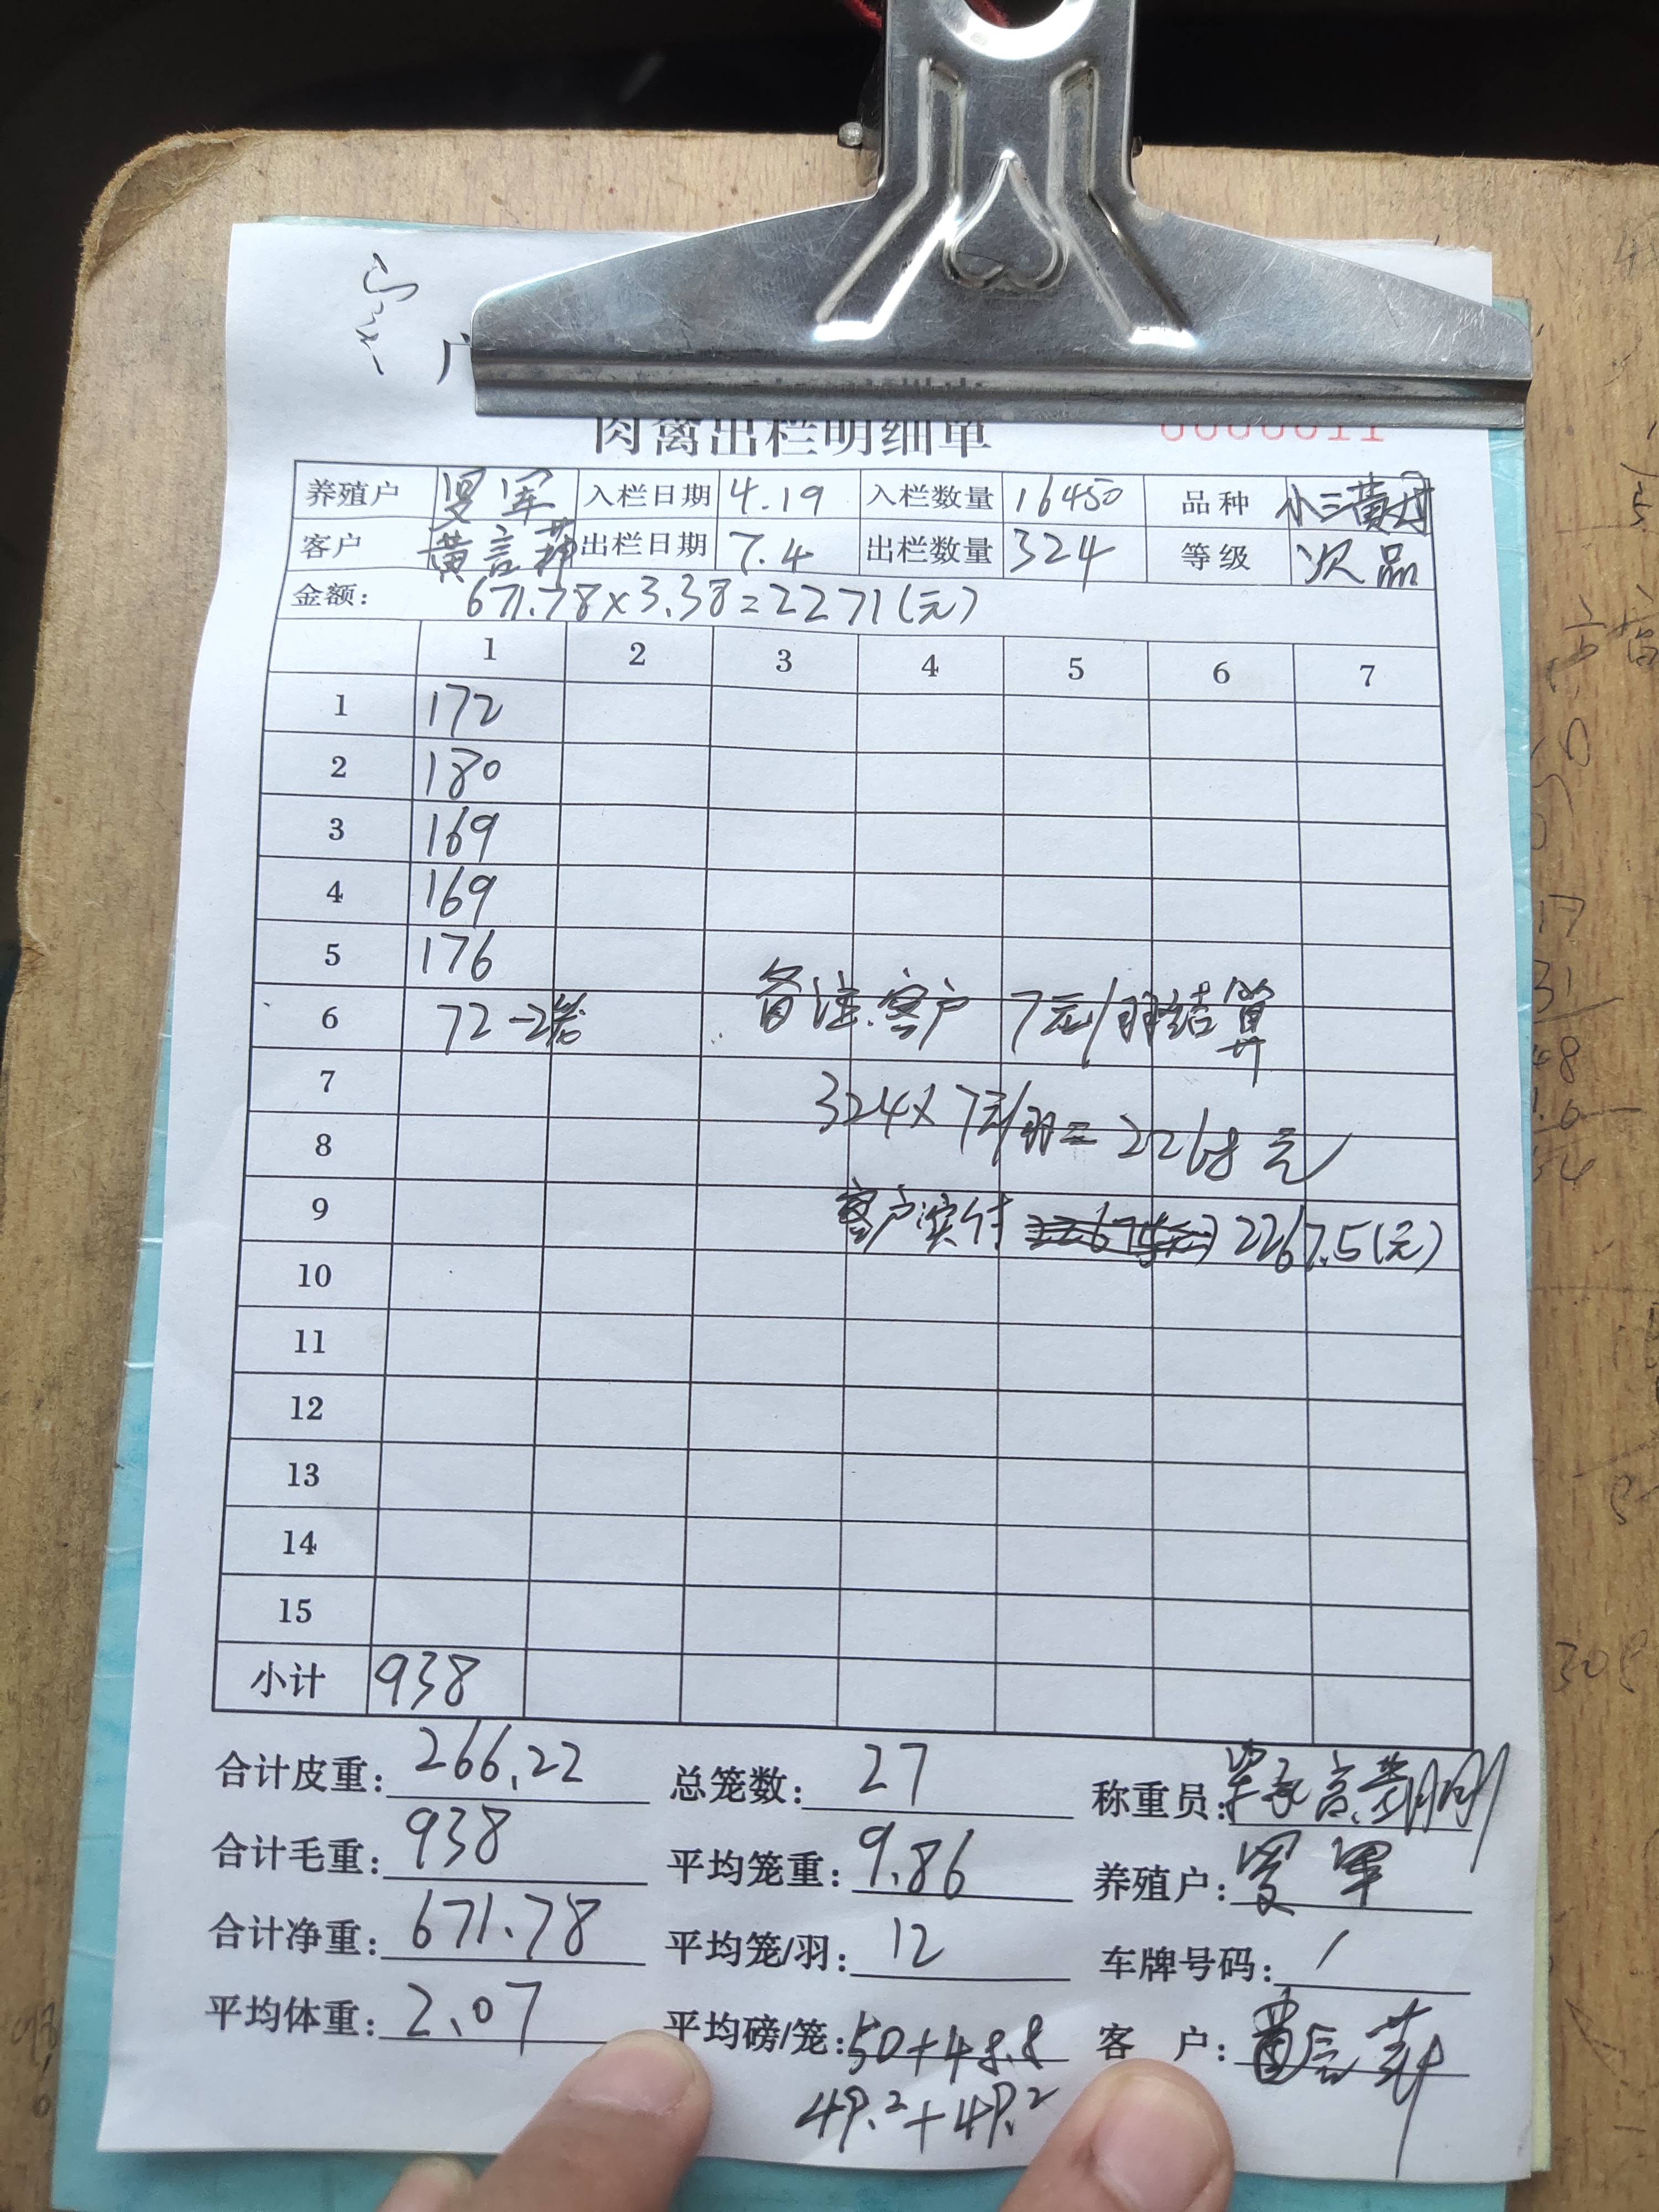 肉禽出栏明细单
养殖户 罗军 入栏日期 4.19 入栏数量 16450 品种 小三黄母
客户 黄言 出栏日期 7.4 出栏数量 324 等级 次品
金额: 671.78×3.38=2271(元)
1 2 3 4 5 6 7
1 172
2 180
3 169
4 169
5 176
6 72-2笼 备注:客户 7元/羽结算
7 324×7元/羽=2268元
8
9 客户实付 2267.5(元)
10
11
12
13
14
15
小计 938
合计皮重: 266.22 总笼数: 27 称重员:
合计毛重: 938 平均笼重: 9.86 养殖户: 罗军
合计净重: 671.78 平均笼/羽: 12 车牌号码: /
平均体重: 2.07 平均磅/笼: 50+48.8 客户: 黄言
49.2+49.2